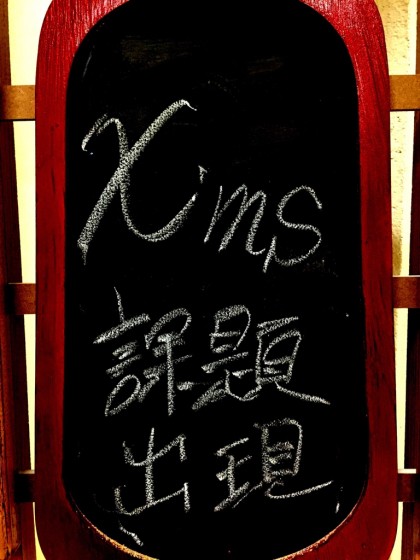 X'ms
課題
出現